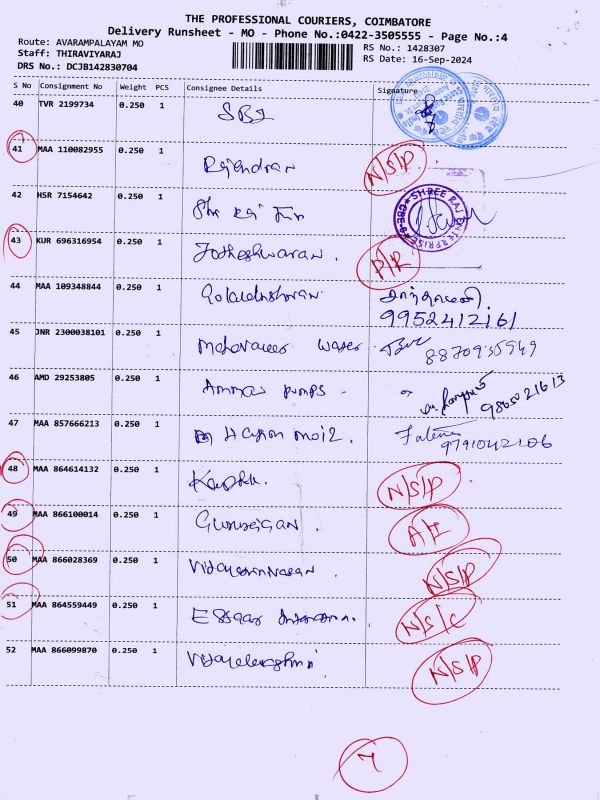 THE PROFESSIONAL COURIERS, COIMBATORE
Delivery Runsheet - MO - Phone No.:0422-3505555 - Page No.:4
Route: AVARAMPALAYAM MO
Staff: THIRAVIYARAJ
DRS No.: DCJB142830704
RS No.: 1428307
RS Date: 16-Sep-2024
S No Consignment No Weight PCS Consignee Details Signature
40 TVR 2199734 0.250 1 SBI
41 MAA 110082955 0.250 1 Rajendran N/S/P
42 HSR 7154642 0.250 1
SHREE RAJ ENTERPRISE CBE-6
43 KUR 696316954 0.250 1 Jotheshwaran. P/R
44 MAA 109348844 0.250 1
9952412161
45 JNR 2300038101 0.250 1 Mahaveer Water
8870935949
46 AMD 29253805 0.250 1 Ammar pumps
9865021613
47 MAA 857666213 0.250 1
9791042106
48 MAA 864614132 0.250 1 N/S/P
49 MAA 866100014 0.250 1 Gurusigan. A/I
50 MAA 866028369 0.250 1 Vidayasrinivasan. N/S/P
51 MAA 864559449 0.250 1 N/S/C
52 MAA 866099870 0.250 1 Vijayalakshmi N/S/P
7